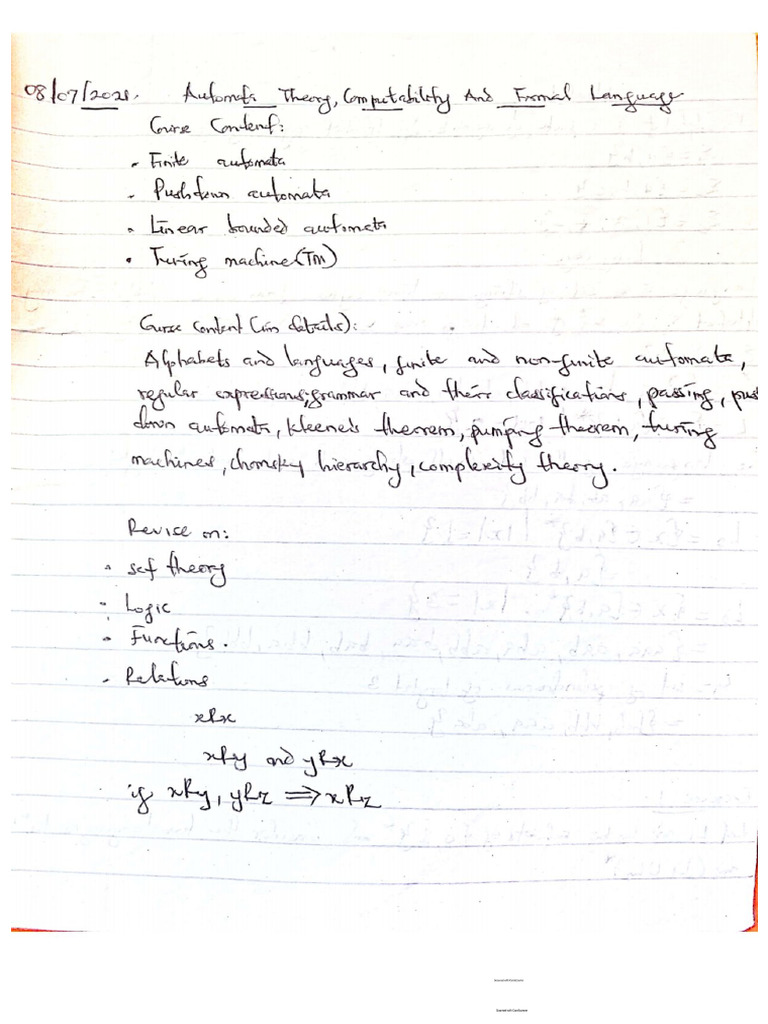 08/07/2021. Automata Theory, Computability And Formal Language
Course Content:
- Finite automata
- Pushdown automata
- Linear bounded automata
- Turing machine (TM)
Course content (in details):
Alphabets and languages, finite and non-finite automata,
regular expressions, grammar and their classifications, passing, push
down automata, Kleene's theorem, pumping theorem, turing
machines, chomsky hierarchy, complexity theory.
Revise on:
- set theory
- Logic
- Functions.
- Relations
xRx
xRy and yRx
if xRy, yRz ⟹ xRz